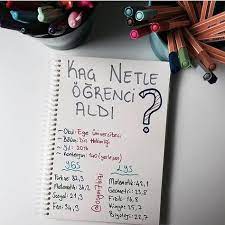 KAÇ NETLE
ÖĞRENCİ
ALDI ?
- Okul: Ege Üniversitesi
- Bölüm: Diş Hekimliği
- Yıl: 2016
- Kontenjan: 140 (yerleşen)
YGS LYS
Türkçe: 32,3 Matematik: 42,1
Matematik: 36,2 Geometri: 23,7
Sosyal: 21,3 Fizik: 16,8
Fen: 34,3 Kimya: 25,7
Biyoloji: 22,7